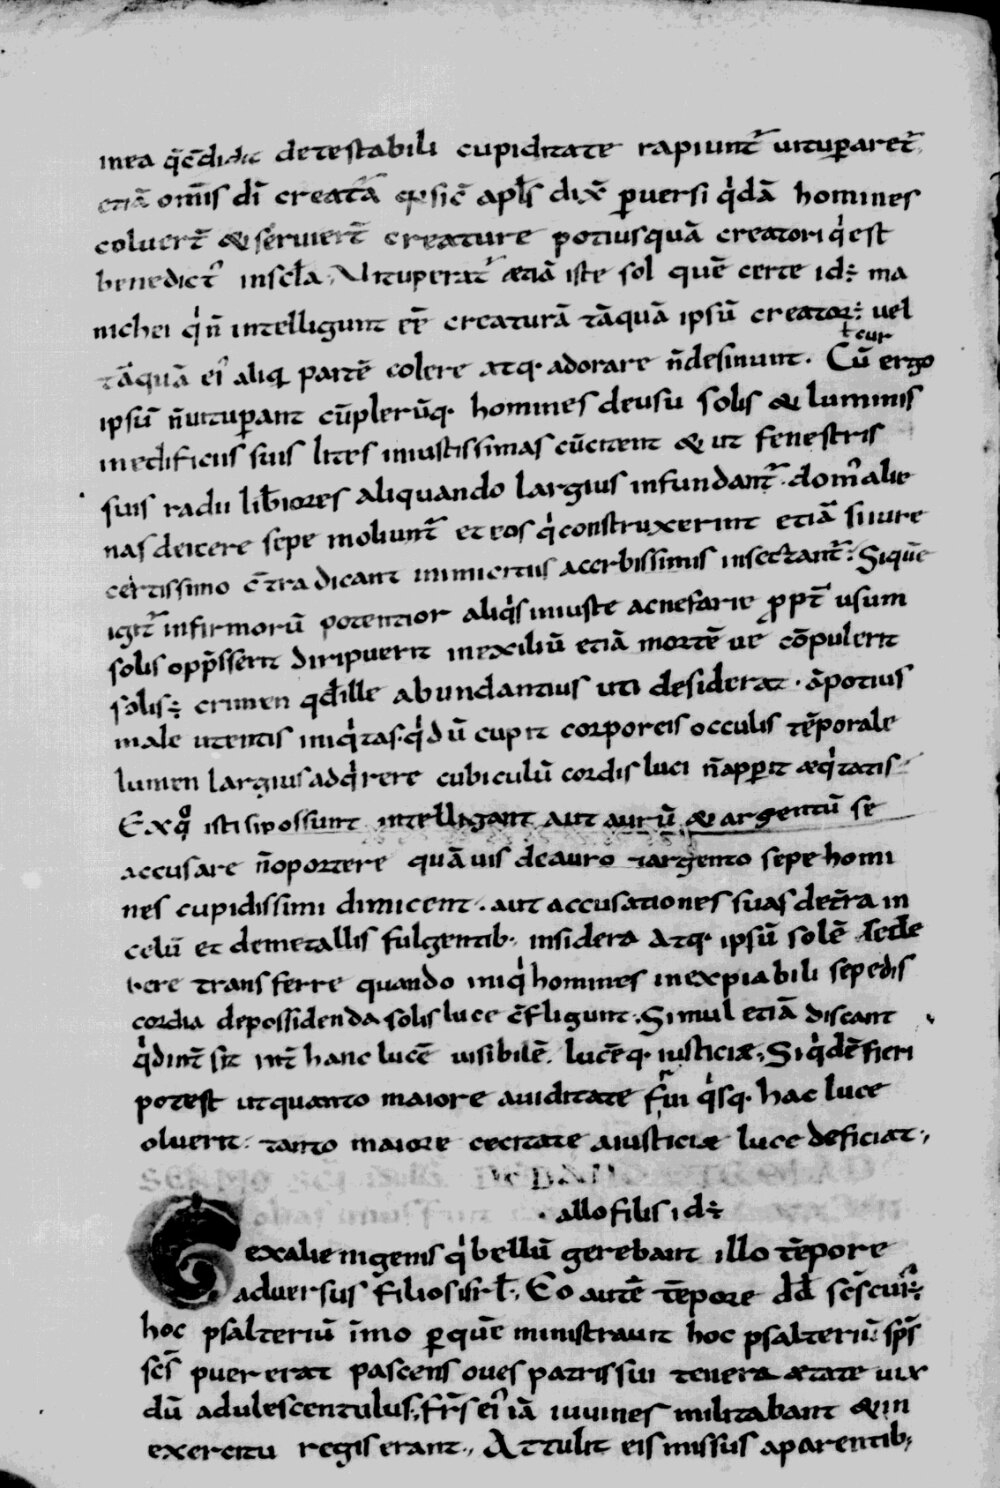 mea q̄cōdidit detestabili cupiditate rapiunt᷒ uitup̄aret᷒
etiā om̄s dī creatā qꝫ sic̄ apl̄s dix̄ p̄uersi qͥdā homines
coluer̄t & seruier̄t creature potiusquā creatori qͥ est
benedict᷒ in sc̄la; Uituperat᷒ ætiā iste sol quē certe id÷ ma
nichei qͥ n̄ intelligunt eē creaturā tāquā ipsū creator÷ uel
tāquā ei᷒ aliq̄ partē colere atq· adorare n̄desinunt· Cū ergo
ł cur
ipsū n̄uitup̄ant cū plerūq· homines deusu solis & luminis
inedificiis suis lites iniustissimas cūcitent & ut fenestris
suis radii lib̄iores aliquando largius infundant᷒· dom᷒ alie
nas deicere sepe moliunt᷒ et eos qͥ construxerint etiā si iure
certissimo c̄tradicant inimicitiis acerbissimis insectant᷒· Siquē
igit᷒ infirmorū potentior aliqͥs iniuste acnefarie ꝓpt̄ usum
solis opp̄sserit diripuerit inexiliū etiā mortē ue cōpulerit
solis÷ crimen qd̄ ille abundantius uti desiderat· ā potius
male utentis iniqͥtas· qͥ dū cupit corporeis occulis tēporale
lumen largius adqͥrere cubiculū cordis luci n̄app̄it æqͥtatis
Exqͦ isti si possunt intelligant aut aurū & argentū se
accusare n̄oportere quāuis deauro & argento sepe homi
nes cupidissimi dimicent· aut accusationes suas det̄ra in
celū et demetallis fulgentib; insidera atq· ipsū solē sed̄e
bere transferre quando iniqͥ homines inexpiabili sepe dis
cordia depossidenda solis luce c̄fligunt· Simul etiā discant
qͥd int̄sit int̄ hanc lucē uisibilē· lucēq· iusticiæ; Siqͥdē fieri
potest utquanto maiore auiditate frui qͥsq· hac luce
oluerit· tanto maiore cecitate aiusticiæ luce deficiat;
allofilis id÷
Gexalienigenis qͥ bellū gerebant illo tēpore
aduersus filios isrl̄; Eo autē tēpore dd̄ sc̄s cui᷒÷
hoc psalteriū immo p̄quē ministrauit hoc psalteriū sp̄s
sc̄s puer erat pascens oues patris sui tenera ætate uix
dū adulescentulus; fr̄s ei᷒ iā iuuines militabant & in
exercitu regis erant; Attulit eis missus aparentib;